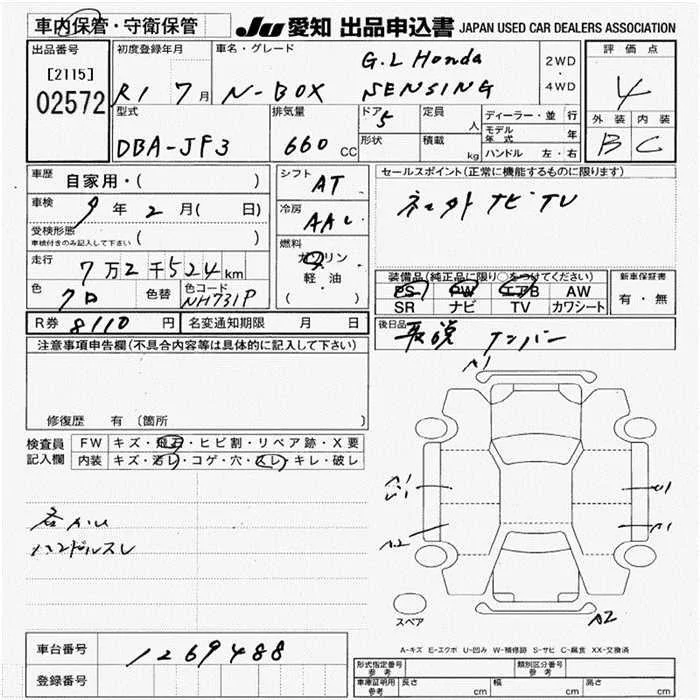 車内保管・守衛保管
JU 愛知 出品申込書 JAPAN USED CAR DEALERS ASSOCIATION
出品番号
[2115]
02572
初度登録年月
R1 7月
車名・グレード
G.L Honda
N-BOX SENSING
2WD
・
4WD
評価点
4
外装 内装
B C
型式
DBA-JF3
排気量
660 CC
ドア
5
形状
定員
人
積載
kg
ディーラー・並行
モデル年式 年
ハンドル 左・右
車歴
自家用・( )
車検
9年2月( 日)
受検形態
車検付きのみ記入して下さい ( )
走行
7万2千524km
色
クロ
色替
色コード
NH731P
シフト
AT
冷房
AAC
燃料
ガソリン
・
軽・油
( )
セールスポイント(正常に機能するものに限ります)
ナビ TV
装備品(純正品に限り○をつけてください)
PS PW エアB AW
SR ナビ TV カワシート
新車保証書
有・無
R券 8110 円 名変通知期限 月 日
後日品
ナンバー
注意事項申告欄(不具合内容等は具体的に記入して下さい)
修復歴 有〔箇所 〕
検査員記入欄
FW キズ・飛石・ヒビ割・リペア跡・X要
内装 キズ・汚レ・コゲ・穴・スレ・キレ・破レ
ハンドルスレ
A1
A1
U1
A2
U1
A1
A2
スペア
A-キズ E-エクボ U-凹み W-補修跡 S-サビ C-腐食 XX-交換済
車台番号
1269488
登録番号
形式指定番号
参考
類別区分番号
参考
車庫証明用
参考
長さ cm 幅 cm 高さ cm